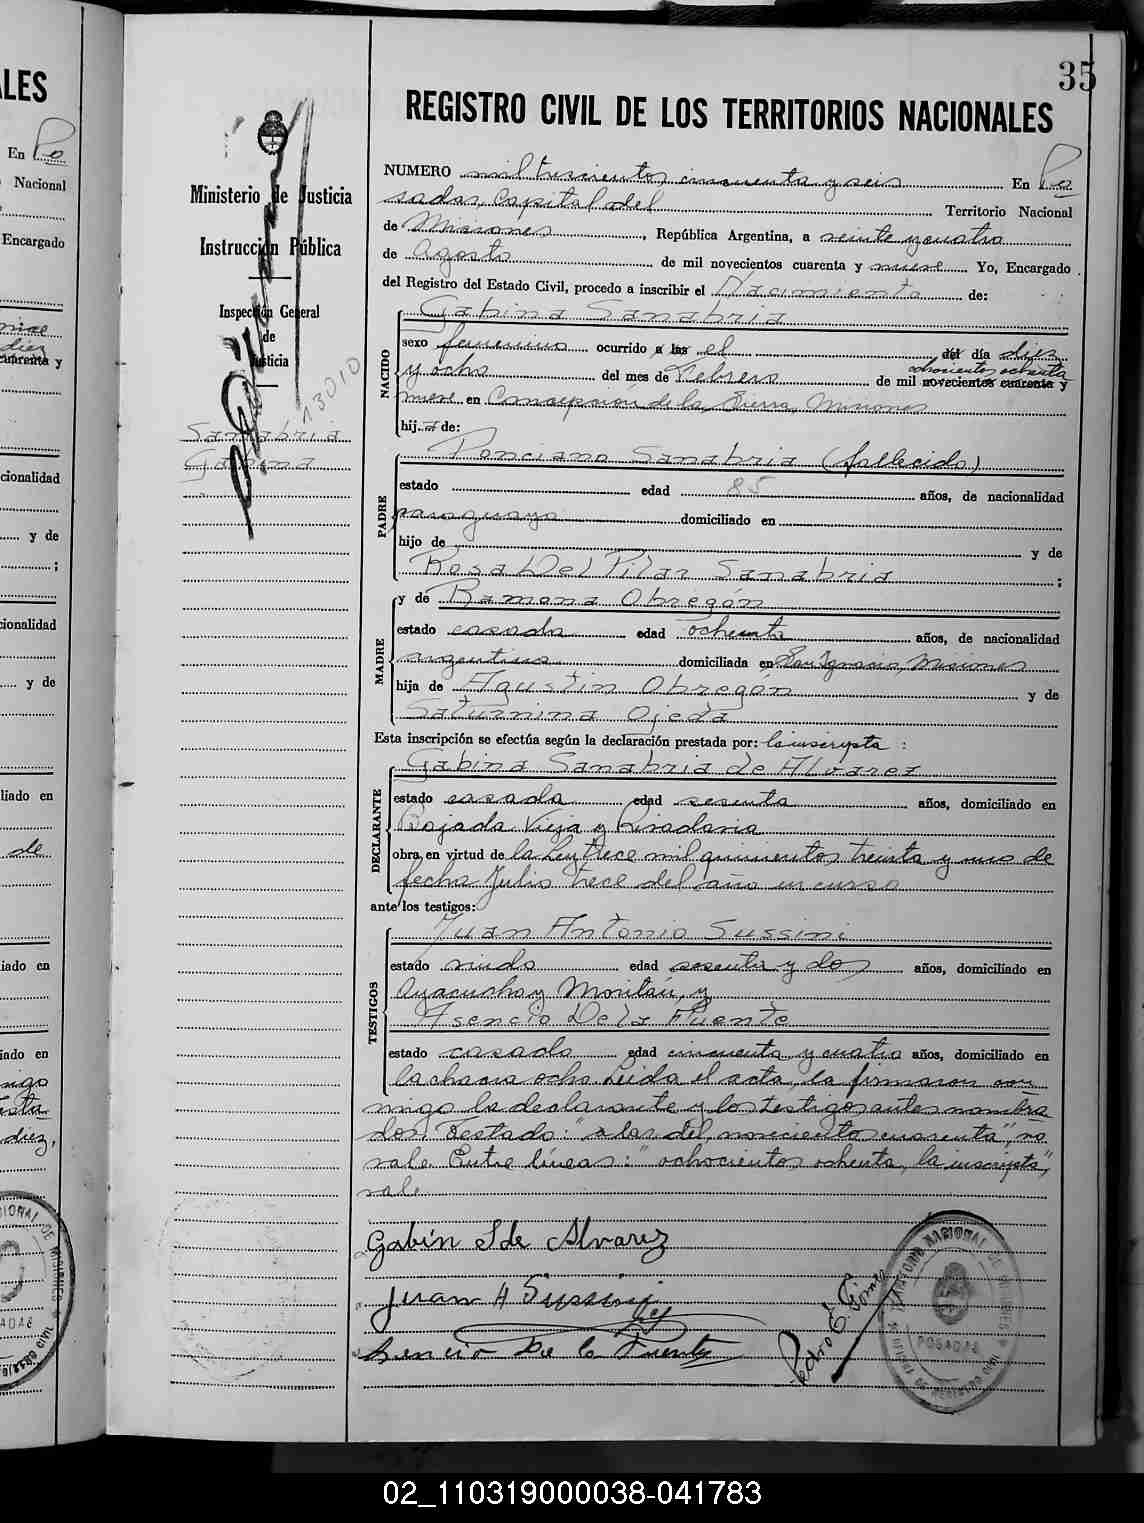 35
REGISTRO CIVIL DE LOS TERRITORIOS NACIONALES
Ministerio de Justicia
Instrucción Pública
Inspección General
de
Justicia
13010
Sanabria
Gabina
NUMERO mil trescientos cincuenta y seis En Po
sadas, Capital del Territorio Nacional
de Misiones, República Argentina, a veinte y cuatro
de Agosto de mil novecientos cuarenta y nueve Yo, Encargado
del Registro del Estado Civil, procedo a inscribir el Nacimiento de:
NACIDO
Gabina Sanabria
sexo femenino ocurrido a las el del día diez
ochocientos ochenta
y ocho del mes de Febrero de mil novecientos cuarenta y
nueve en Concepción de la Sierra, Misiones
hija de:
PADRE
Ponciano Sanabria (fallecido)
estado edad 85 años, de nacionalidad
paraguaya domiciliado en
hijo de y de
Rosa Del Pilar Sanabria ;
MADRE
y de Ramona Obregón
estado casada edad ochenta años, de nacionalidad
argentina domiciliada en San Ignacio, Misiones
hija de Agustin Obregón y de
Saturnina Ojeda
Esta inscripción se efectúa según la declaración prestada por: la inscripta :
DECLARANTE
Gabina Sanabria de Alvarez
estado casada edad sesenta años, domiciliado en
Bajada Vieja y Rivadavia
obra en virtud de la Ley trece mil quinientos treinta y uno de
fecha Julio trece del año en curso
ante los testigos:
TESTIGOS
Juan Antonio Sussini
estado viudo edad sesenta y dos años, domiciliado en
Ayacucho y
Asencio De la Fuente
estado casado edad cincuenta y cuatro años, domiciliado en
la chacra ocho. Leida el acta, la firmaron con
migo la declarante y los testigos antes nombra
dos. Testado: "a las del, novecientos cuarenta", no
vale. Entre líneas: "ochocientos ochenta, la inscripta",
vale.
Gabin S de Alvarez
Juan A Sussini
Asencio De la Fuente
Pedro E.
POSADAS
LES
En Po
Nacional
Encargado
diez
cuarenta y
cionalidad
y de
;
ionalidad
y de
liado en
de
iado en
iado en
diez,
02_110319000038-041783